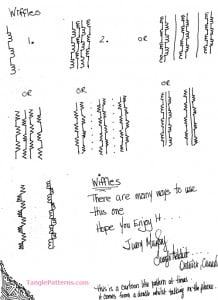 Wiffles
1.
2.
OR
OR
OR
OR
Wiffles
There are many ways to use
this one
Hope you Enjoy it....
Ontario, Canada
This is a cartoon like pattern at times.
it comes from a doodle whilst talking on the phone.
TanglePatterns.com